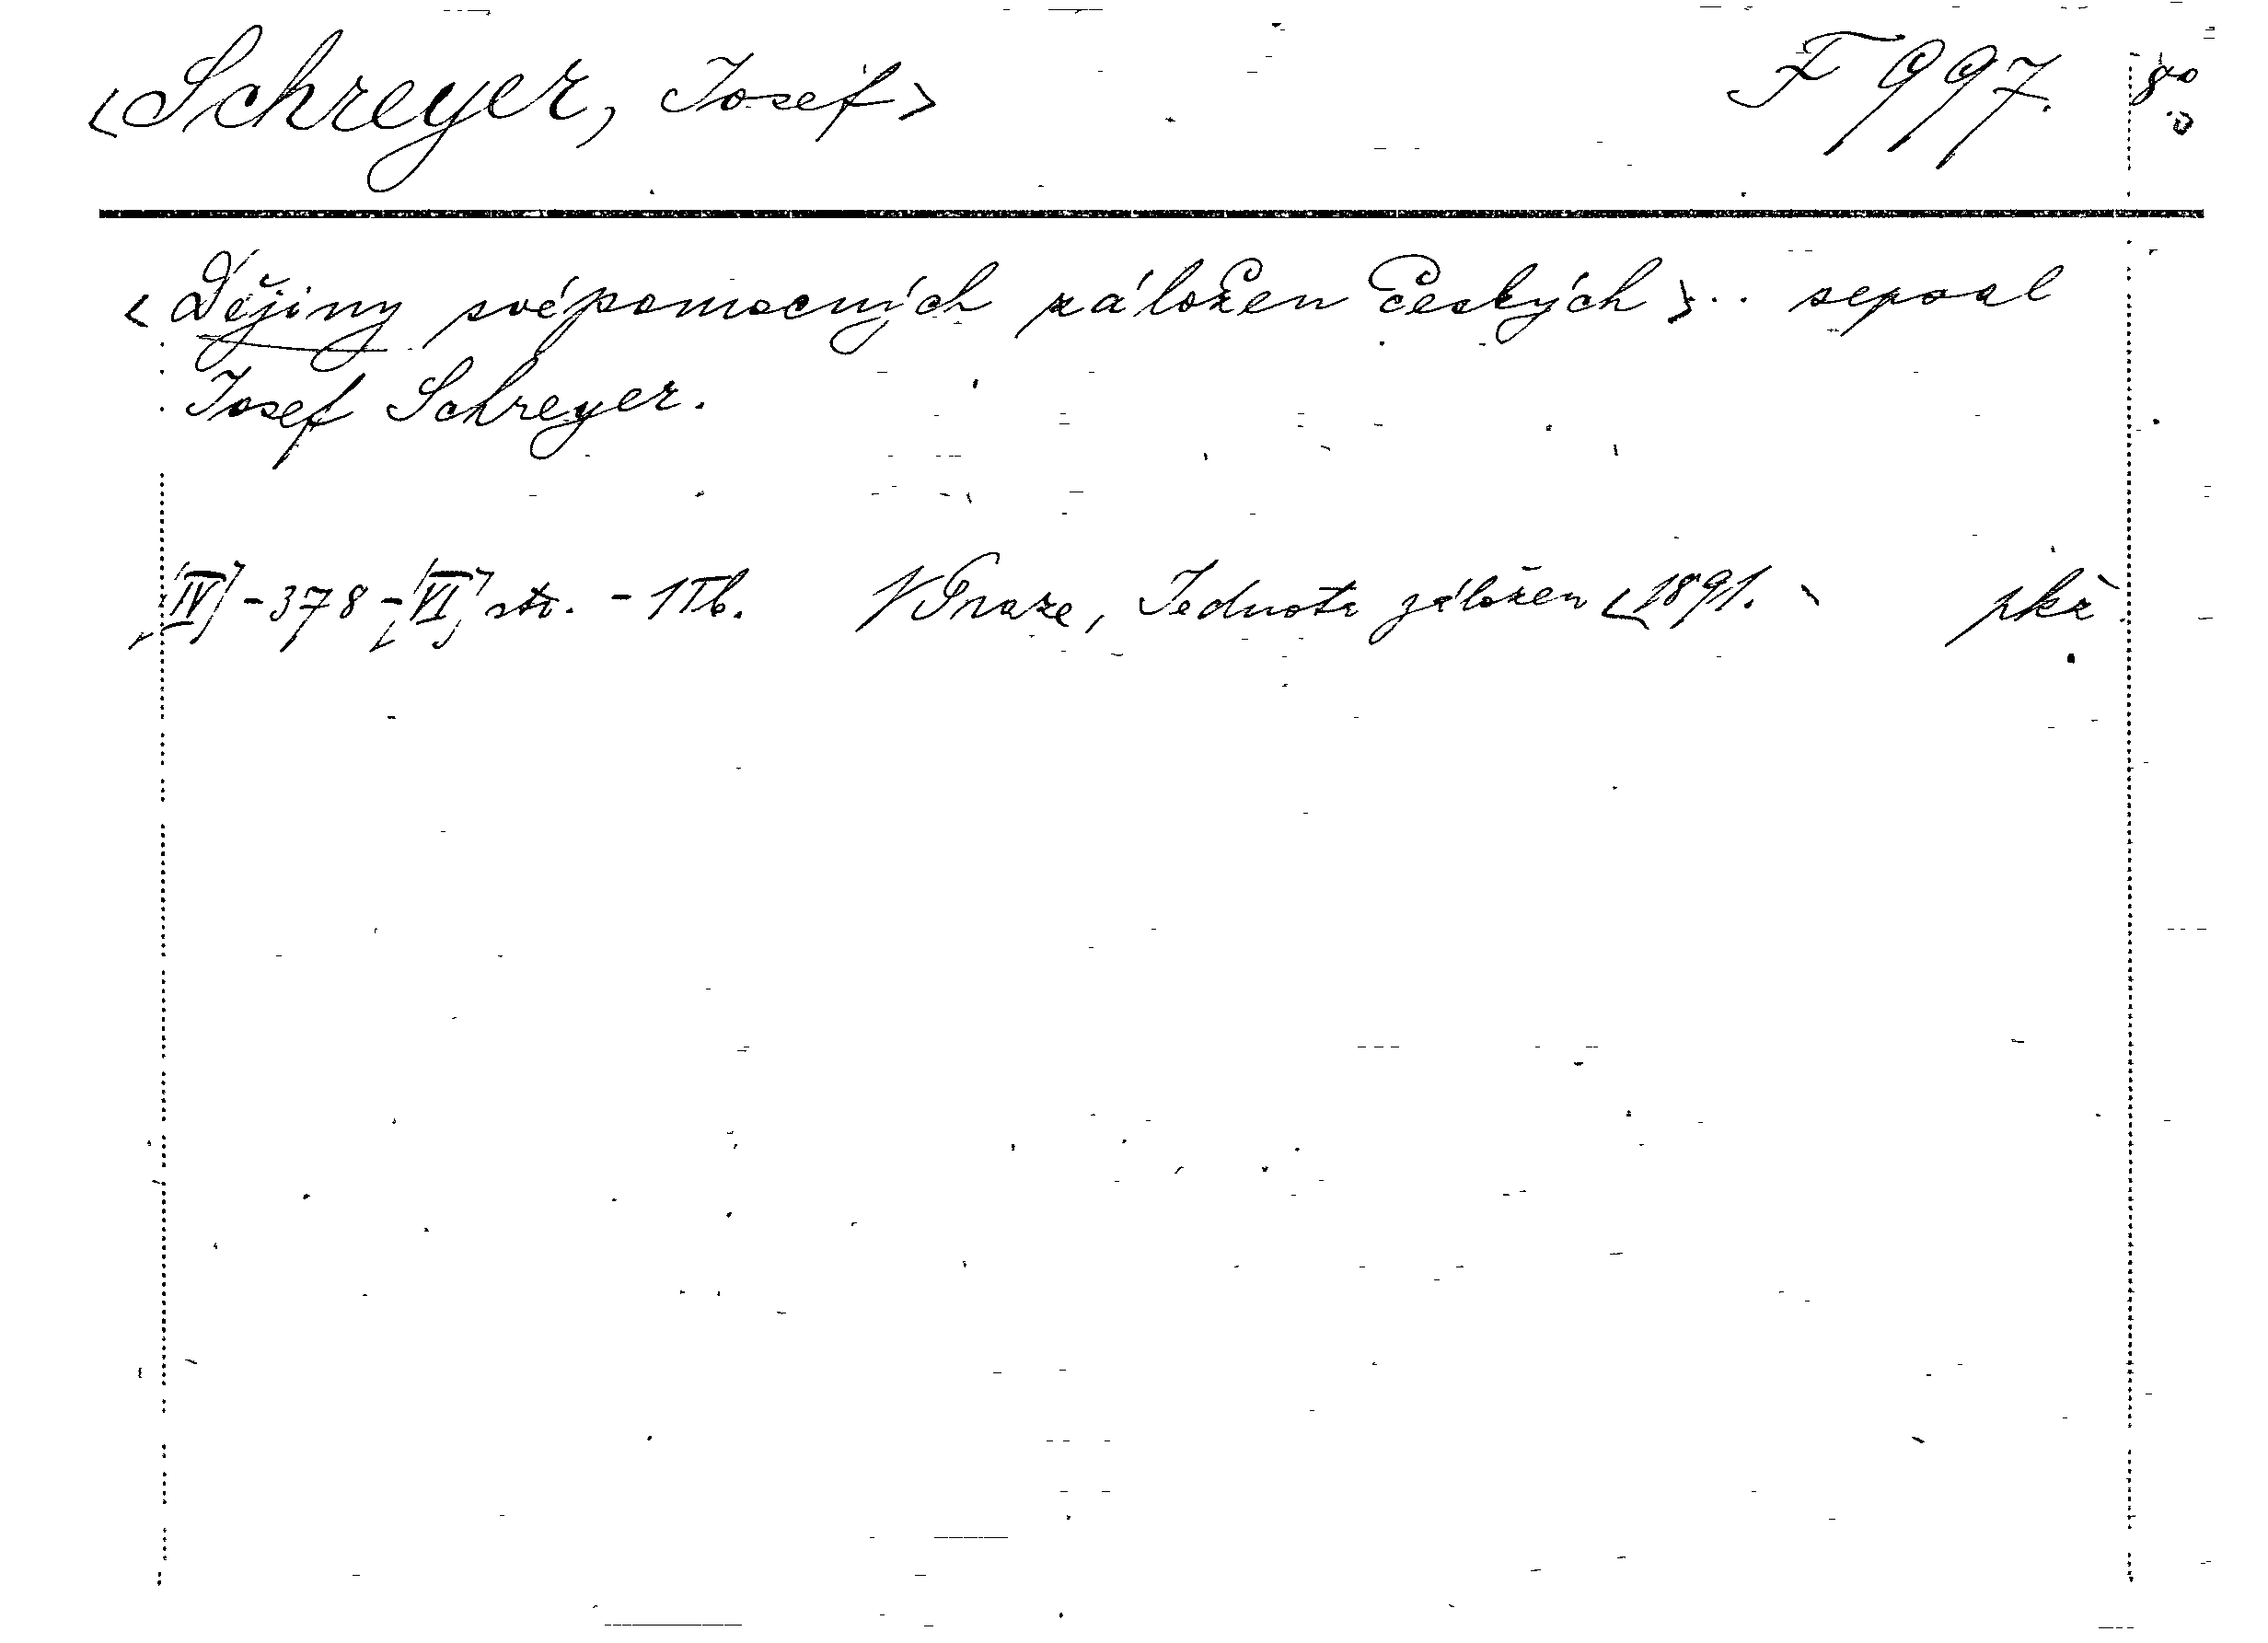 <Schreyer, Josef> F 997. 8°
<Dějiny svépomocných záložen českých>.. sepsal
Josef Schreyer.
[IV]-378-[VI] str. - 1 Tb. V Praze, Jednota záložen <1891. pkž